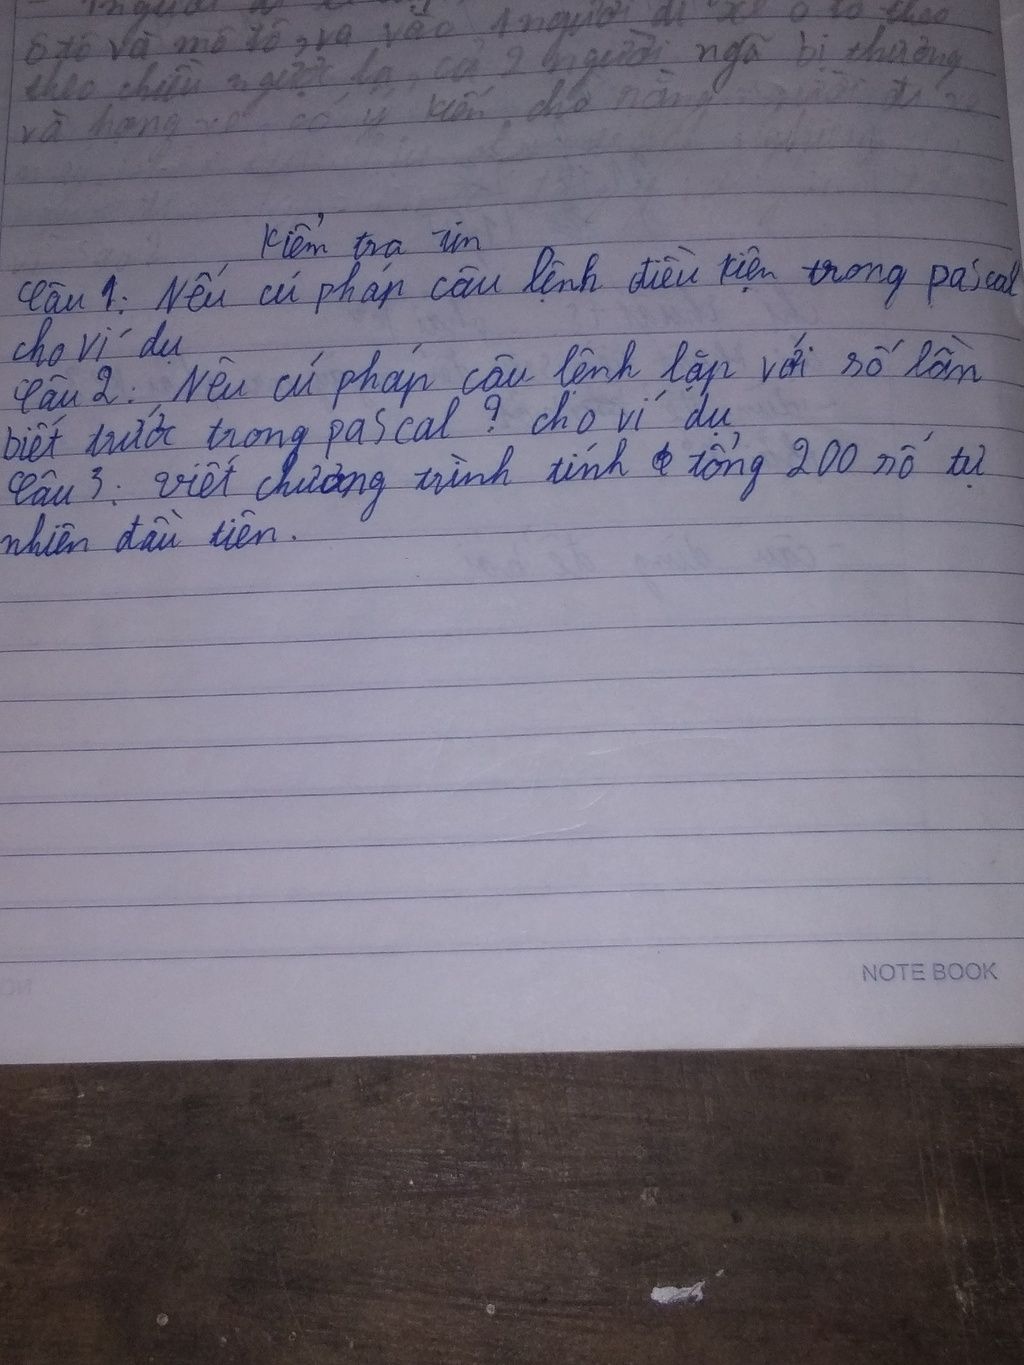 ô tô và mô tô, va vào 1 người đi xe ô tô theo
theo chiều ngược lại, cả 2 người ngã bị thương
và hỏng có ý kiến cho rằng người đi
Kiểm tra tin
Câu 1: Nếu cú pháp câu lệnh điều kiện trong pascal
cho ví dụ
Câu 2: Nêu cú pháp câu lệnh lặp với số lần
biết trước trong pascal ? cho ví dụ
Câu 3: Viết chương trình tính tổng 200 số tự
nhiên đầu tiên.
NOTE BOOK